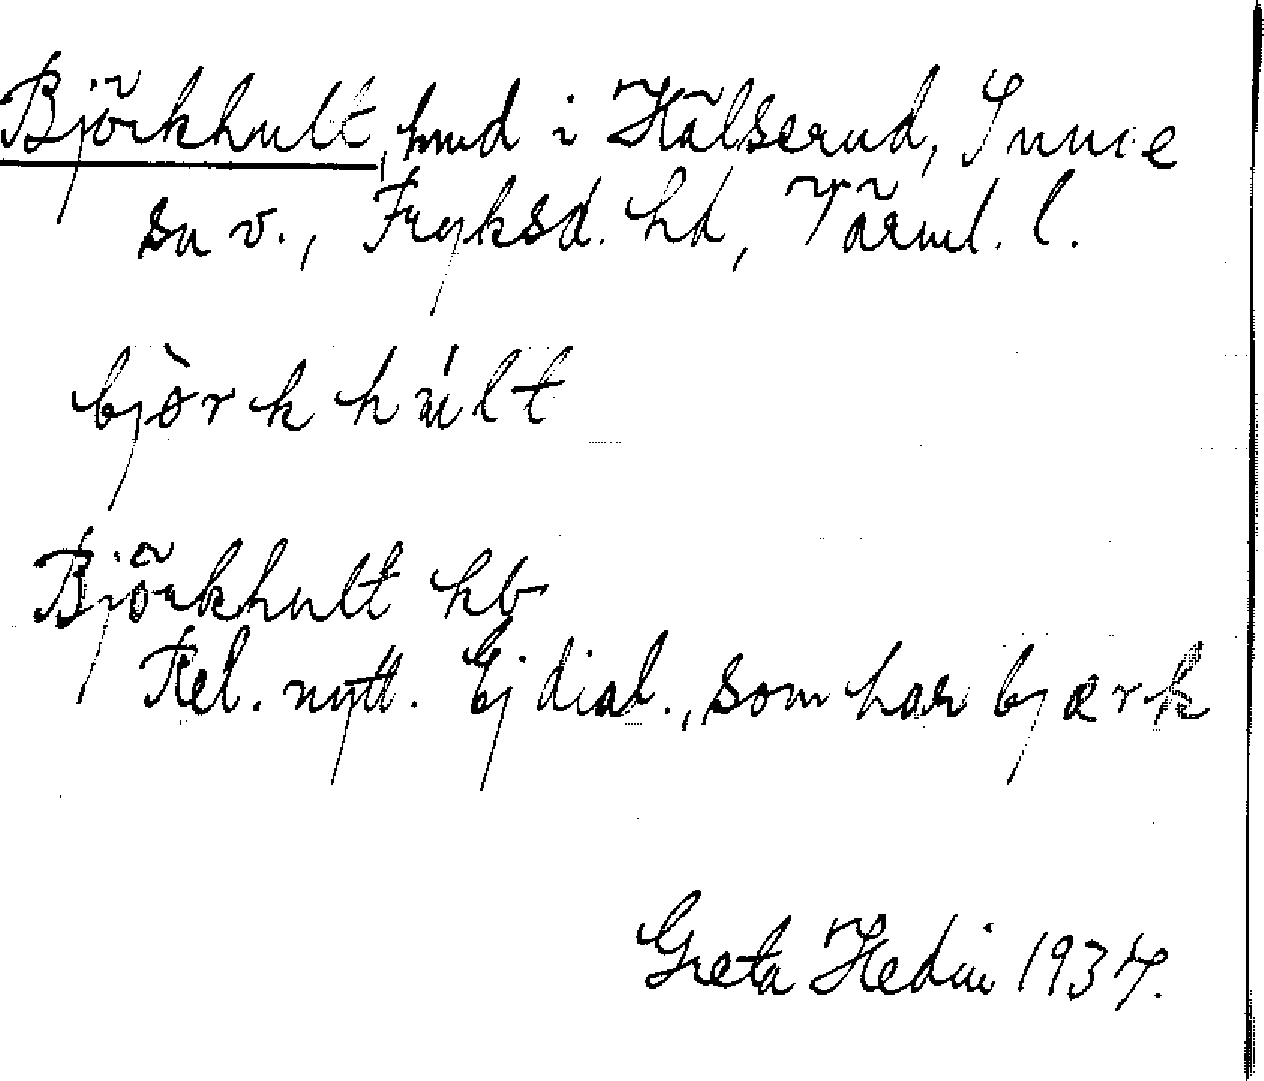 Björkhult, hmd i Hälserud, Sunne
sn v., Fryksd. hd, Värml. l.
bjòrkhúlt
Björkhult hb
Rel. nytt. Ej dial., som har bjærk
Greta Hedin 1937.